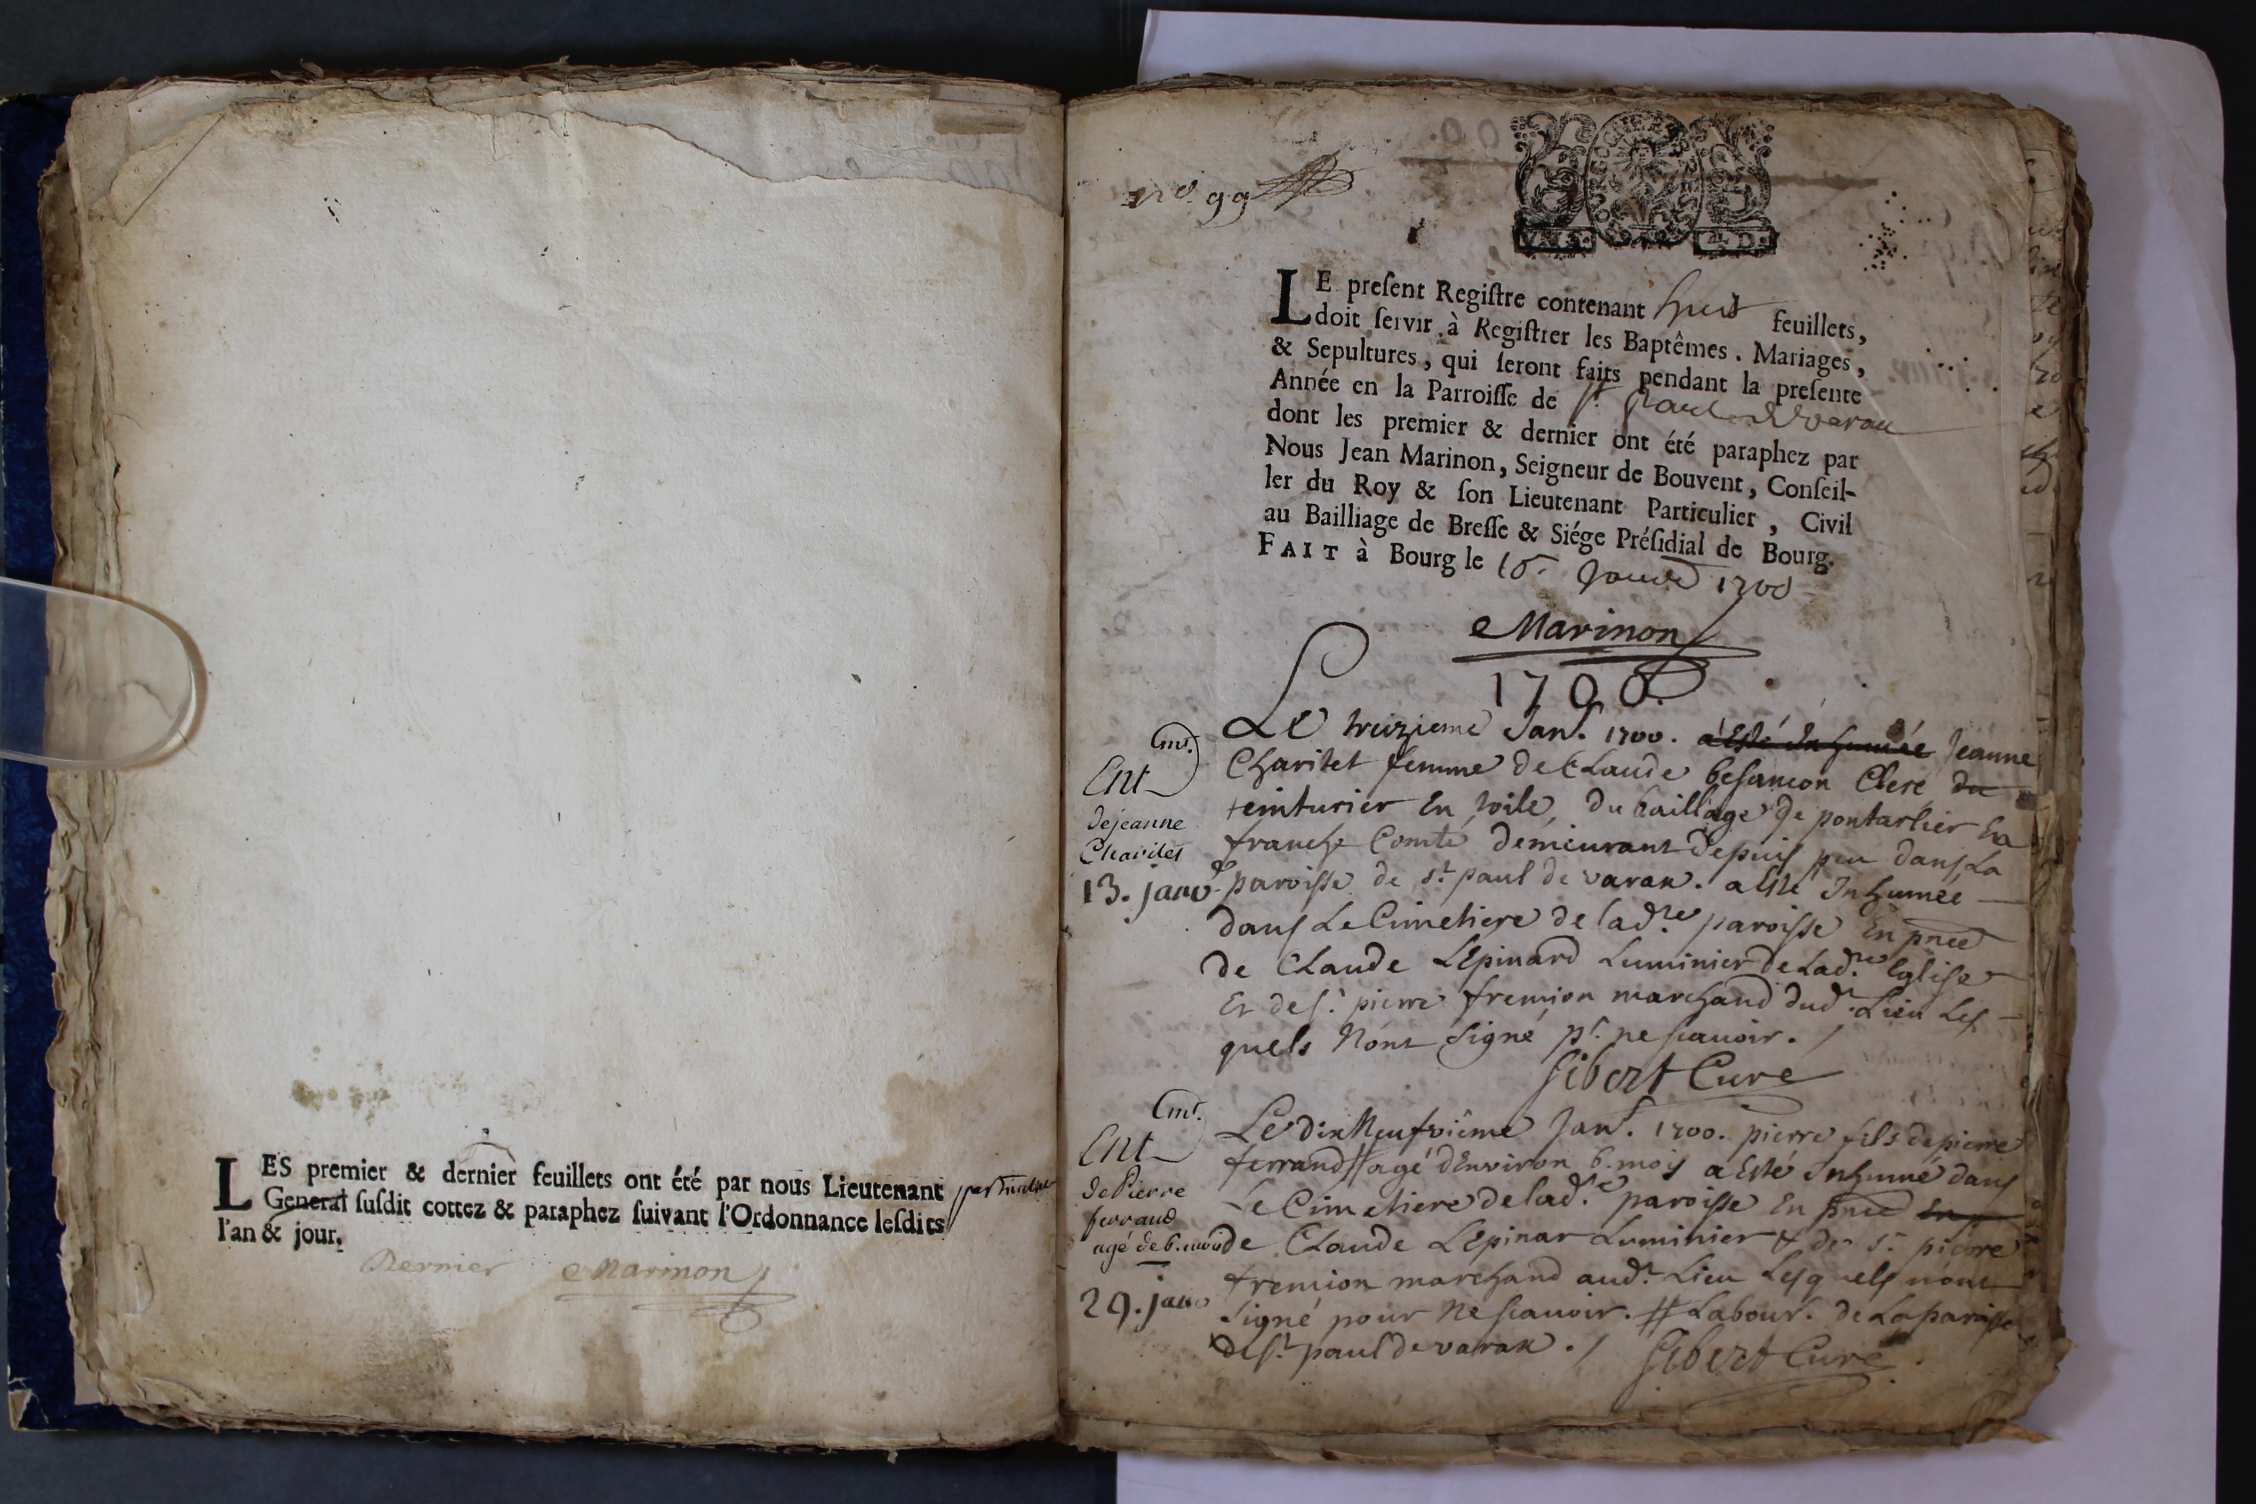 LES premier & dernier feuillets ont été par nous Lieutenant
General susdit cottez & paraphez suivant l'Ordonnance lesdits
l'an & jour.
Dernier Marinon
no. 99
LE present Registre contenant huit feuillets,
doit servir à Registrer les Baptêmes, Mariages,
& Sepultures, qui seront faits pendant la presente
Année en la Parroisse de St. Paul de Varau
dont les premier & dernier ont été paraphez par
Nous Jean Marinon, Seigneur de Bouvent, Conseil-
ler du Roy & son Lieutenant Particulier, Civil
au Bailliage de Bresse & Siége Présidial de Bourg.
FAIT à Bourg le 16. 1700
Marinon
1700.
Ent
de jeanne
Charitet
13. janv
Le treizieme Janr. 1700. a esté inhumée Jeanne
Charitet femme de Claude besançon Clerc du
teinturier En toile, du baillage de pontarlier En
franche Comté demeurant depuis peu dans La
paroisse de st. paul de varax. a esté Inhumée
dans Le Cimetiere de lad.te paroisse En pnce
de Claude LEpinard Luminier de Lad.te Eglise
Et de sr. pierre fremion marchand dud.t Lieu Les
quels N'ont signé pr. ne scauoir. /
Gibert Curé
Ent
de Pierre
ferrand
agé de 6. mois
29. janv
Le dix Neufvième Janr. 1700. pierre fils de pierre
ferrand # agé d'Environ 6. mois a esté Inhumé dans
Le Cimetiere de lad.te paroisse En pnce
de Claude LEpinar Luminier & de sr. pierre
fremion marchand aud.t Lieu Lesquels n'ont
signé pour Ne scauoir. # Labour. de La paroisse
de st. paul de varax. /
Gibert Curé